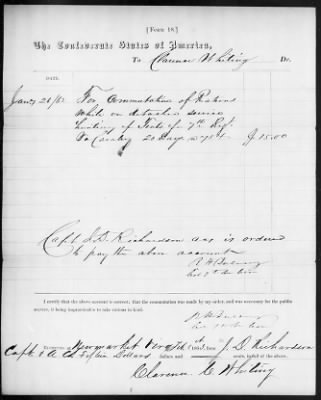 [FORM 18.]
The Confederate States of America,
To Clarence Whiting Dr.
DATE.
Jany 28/62 For Commutation of Rations
while on detached service
of 7th Regt
Va Cavalry 20 Days @ 75¢ $ 15.00
Capt J. D. Richardson is ordered
to pay the above account
I certify that the above account is correct; that the commutation was made by my order, and was necessary for the public
service, it being impracticable to take rations in kind.
Received at Newmarket 1st 1862, from J. D. Richardson
Capt & A. Fifteen Dollars dollars and cents, in full of the above.
Clarence C Whiting